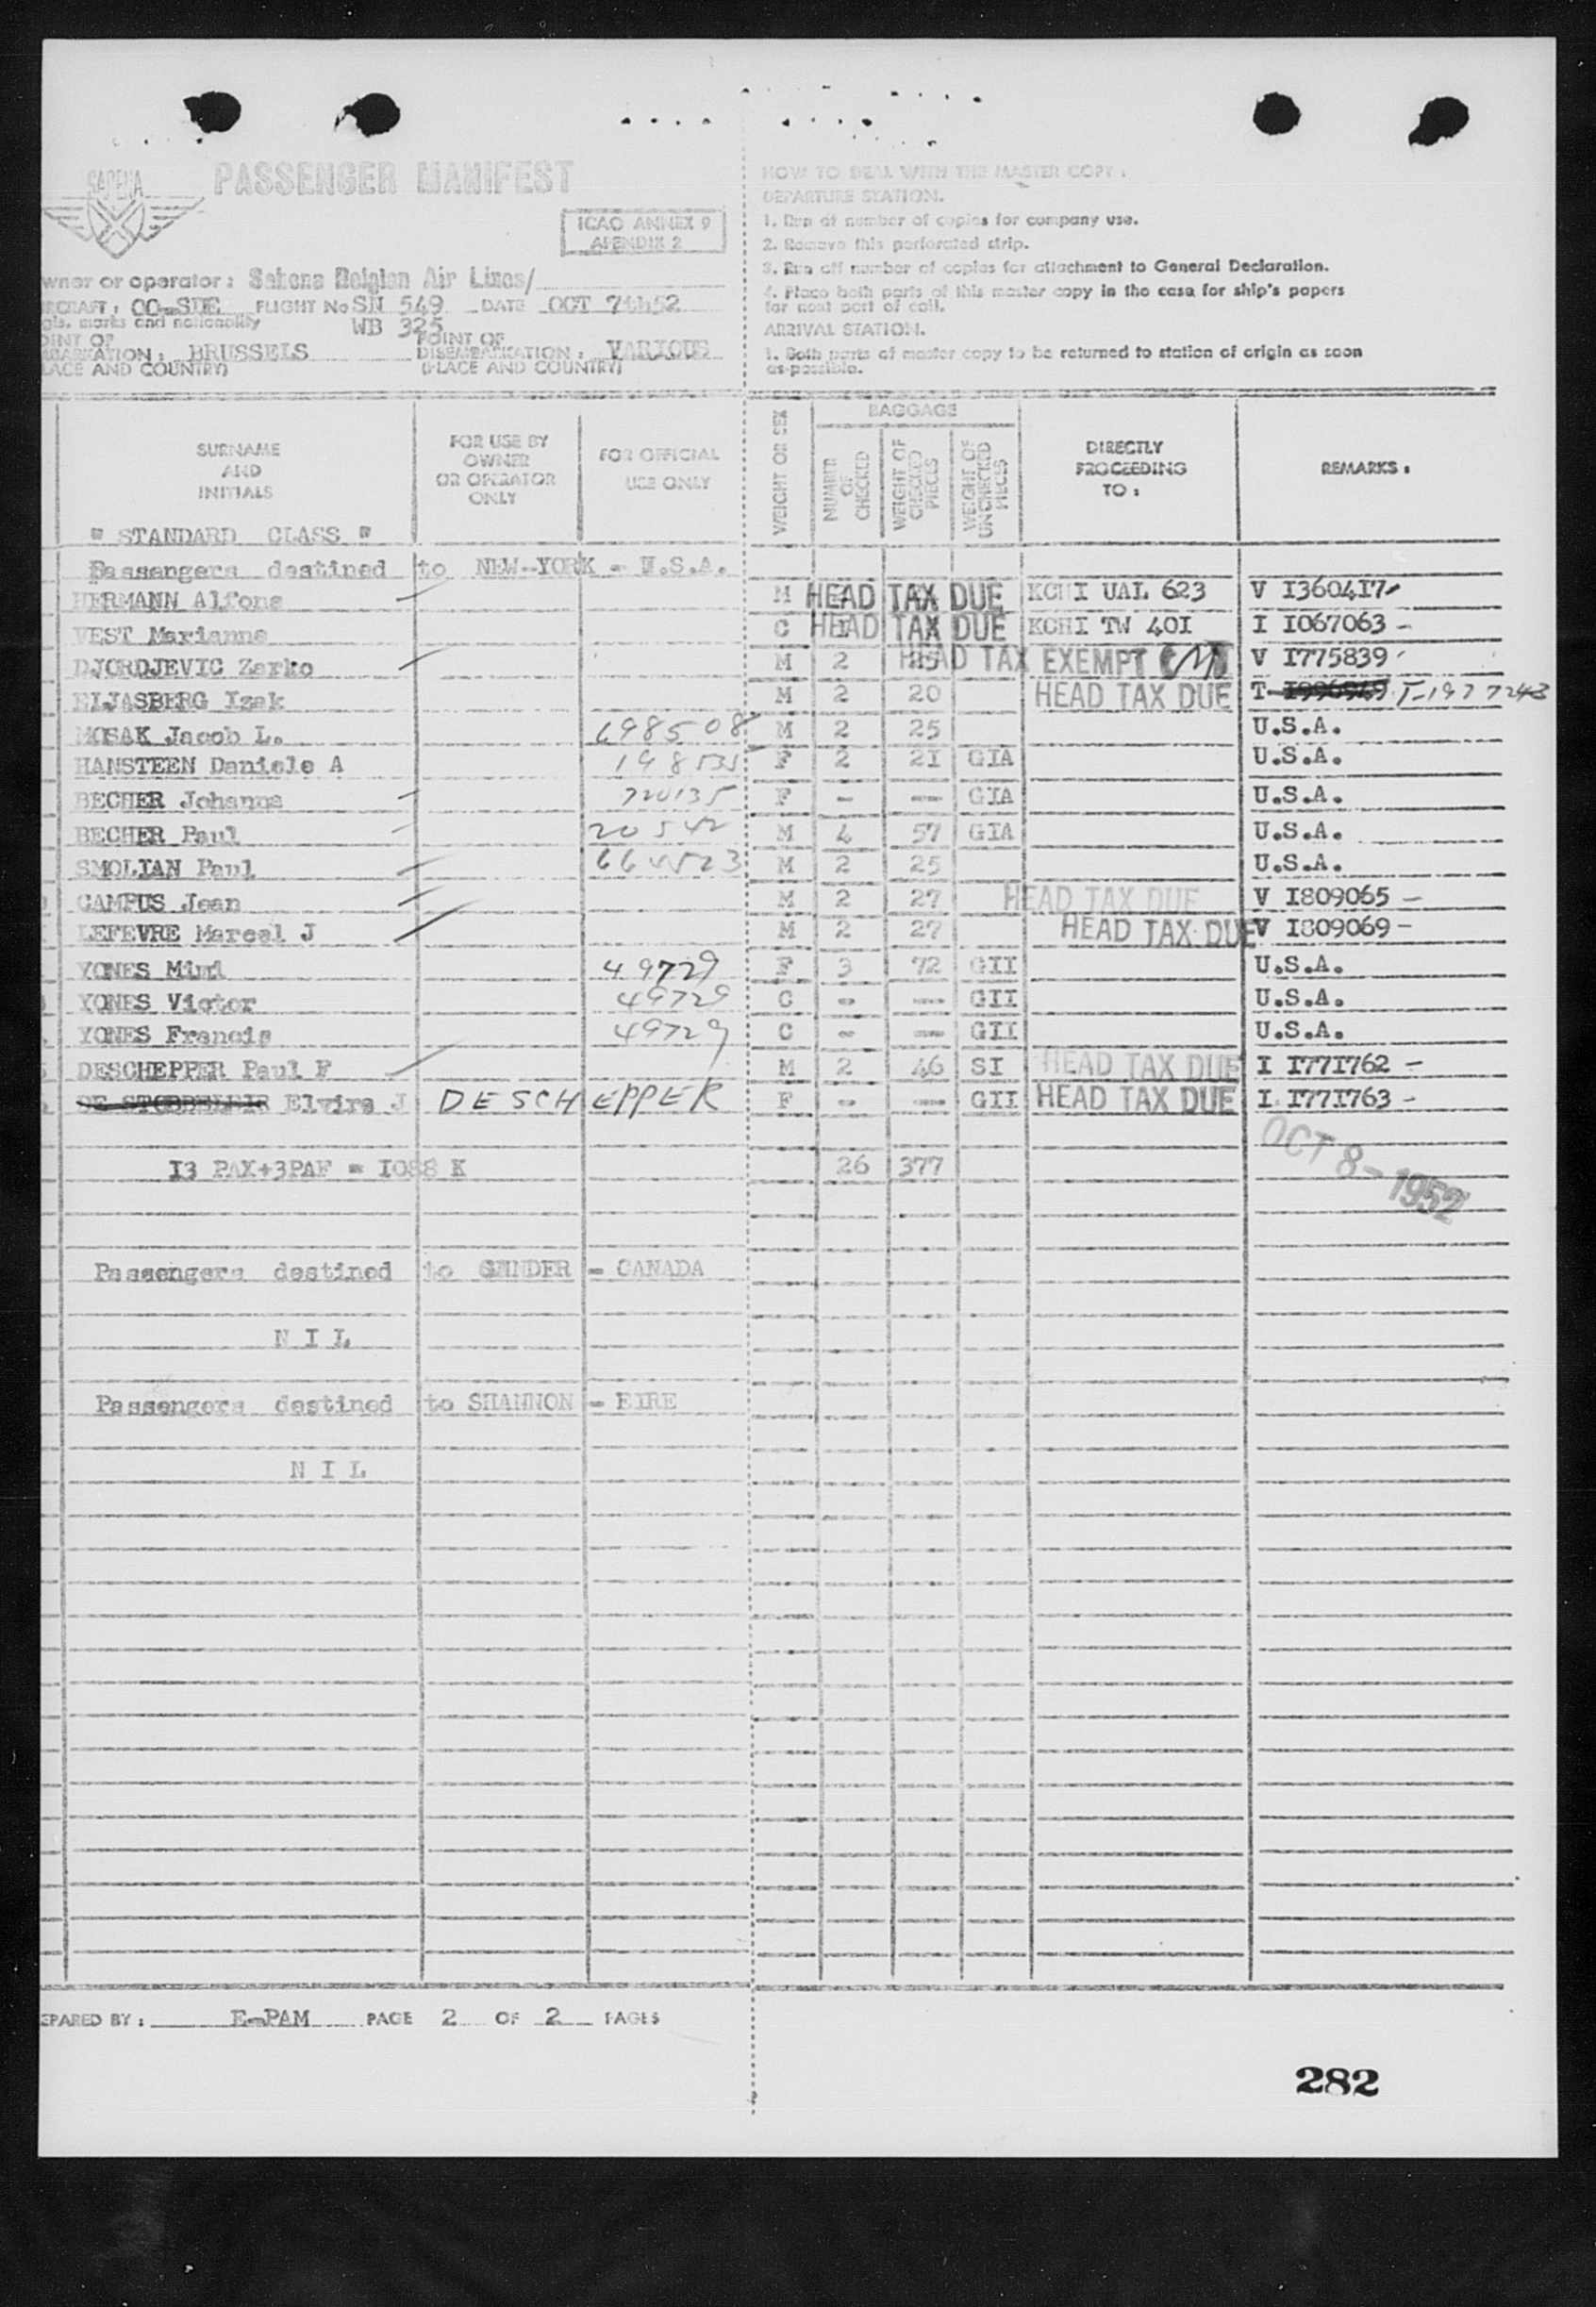 SABENA
PASSENGER MANIFEST
ICAO ANNEX 9
APENDIX 2
wner or operator: Sabena Belgian Air Lines/
RCRAFT: OO-SDE FLIGHT No SN 549 DATE OCT 7th52
gis. marks and nationality WB 325
OINT OF
BARKATION: BRUSSELS
LACE AND COUNTRY)
POINT OF
DISEMBARKATION: VARIOUS
(PLACE AND COUNTRY)
HOW TO DEAL WITH THE MASTER COPY.
DEPARTURE STATION.
1. Run of number of copies for company use.
2. Remove this perforated strip.
3. Run off number of copies for attachment to General Declaration.
4. Place both parts of this master copy in the case for ship's papers
for next port of call.
ARRIVAL STATION.
1. Both parts of master copy to be returned to station of origin as soon
as possible.
SURNAME AND INITIALS
FOR USE BY OWNER OR OPERATOR ONLY
FOR OFFICIAL USE ONLY
WEIGHT OR SEX
BAGGAGE
NUMBER OF CHECKED
WEIGHT OF CHECKED PIECES
WEIGHT OF UNCHECKED PIECES
DIRECTLY PROCEEDING TO:
REMARKS:
" STANDARD CLASS "
Passengers destined to NEW-YORK - U.S.A.
HERMANN Alfons M HEAD TAX DUE KCHI UAL 623 V I3604I7
VEST Marianne C 1 HEAD TAX DUE KCHI TW 40I I I067063 -
DJORDJEVIC Zarko M 2 25 HEAD TAX EXEMPT V I775839
ELJASBERG Izak M 2 20 HEAD TAX DUE T T-1977243
MOSAK Jacob L. 698508 M 2 25 U.S.A.
HANSTEEN Daniele A 198535 F 2 2I GIA U.S.A.
BECHER Johanna 720135 F - --- GIA U.S.A.
BECHER Paul 20542 M 4 57 GIA U.S.A.
SMOLIAN Paul M 2 25 U.S.A.
CAMPUS Jean M 2 27 HEAD TAX DUE V I809065 -
LEFEVRE Marcel J M 2 27 HEAD TAX DUE V I809069 -
YONES Mimi 49729 F 3 72 GII U.S.A.
YONES Victor 49729 C - --- GII U.S.A.
YONES Francis 49729 C - --- GII U.S.A.
DESCHEPPER Paul F M 2 46 SI HEAD TAX DUE I I77I762 -
Elvire J DESCHEPPER F - --- GII HEAD TAX DUE I I77I763 -
I3 PAX+3PAF = I088 K 26 377
OCT 8-1952
Passengers destined to GANDER - CANADA
N I L
Passengers destined to SHANNON - EIRE
N I L
EPARED BY: E-PAM PAGE 2 OF 2 PAGES
282